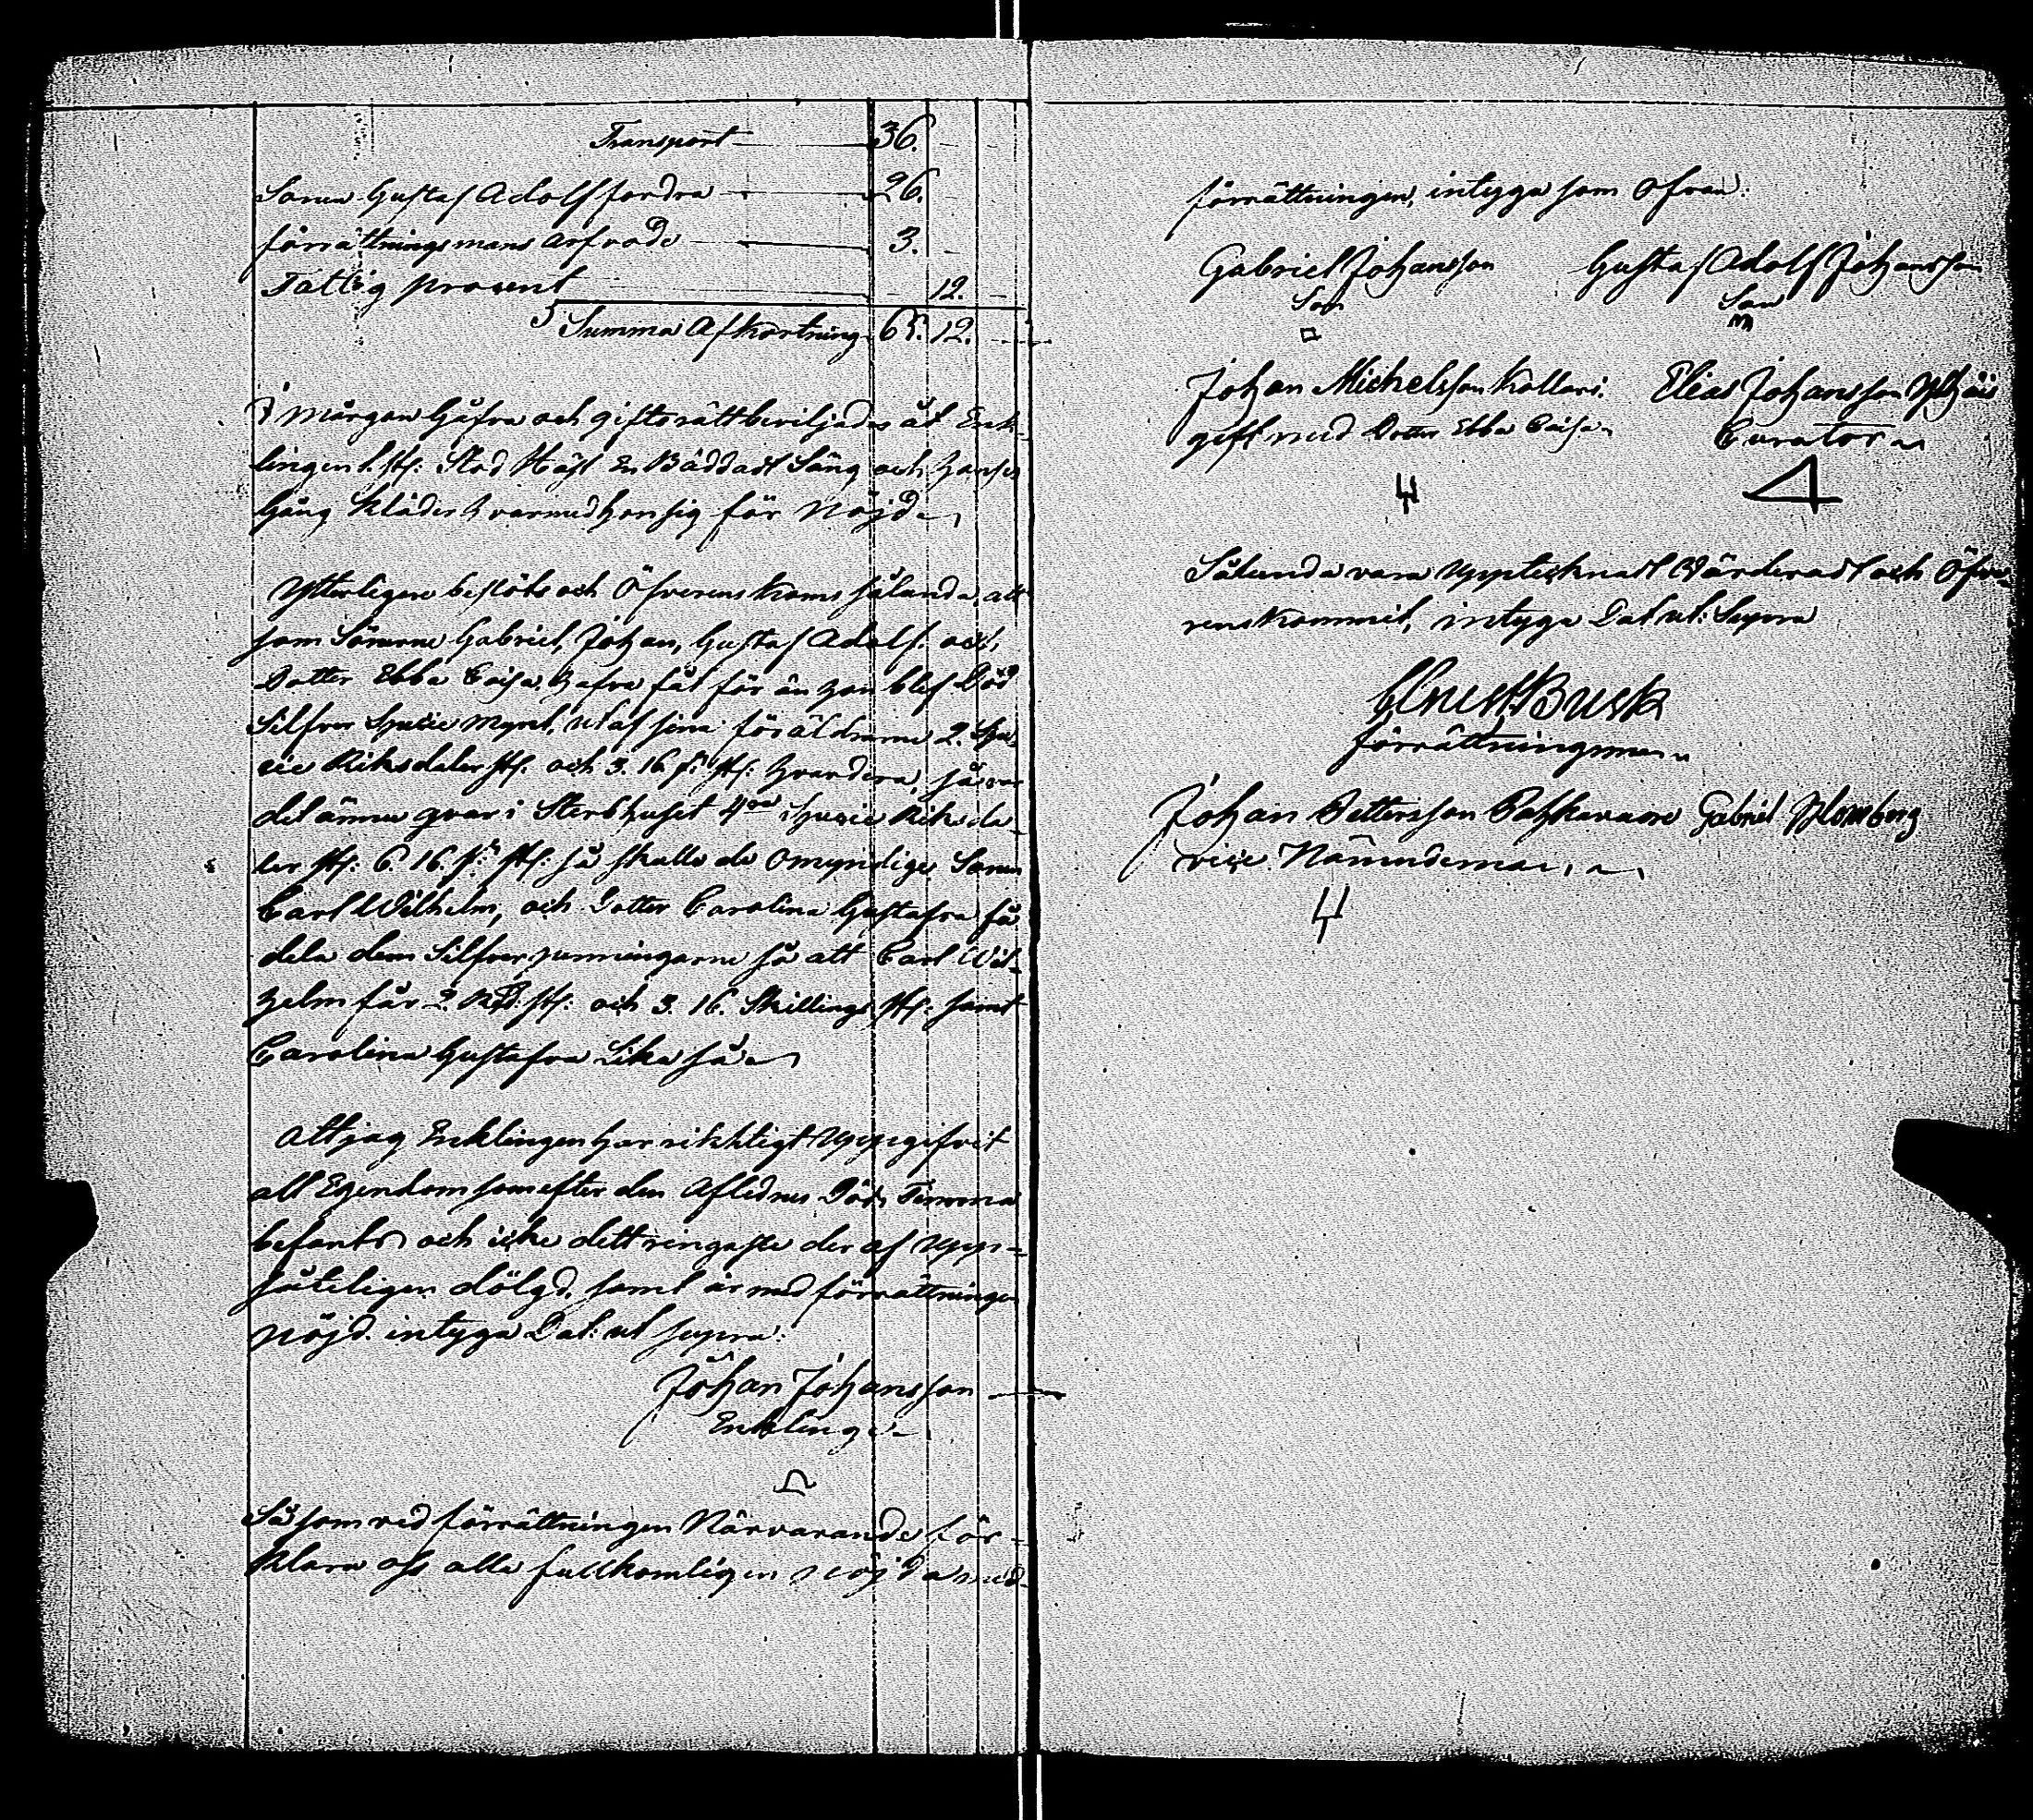 Transport 36.
Sonen Gustaf Adolf fordra 26.
förrättningsmans arfvode 3.
Fattig procent 12.
Summa Afkortning 65. 12.
I Morgon Gåfva och giftorätt beviljades åt Enk-
lingen 1. st: Stod Häst En Bäddadt Säng och hans
Gång Kläder hvarmed han sig för Nöjd
Ytterligare beslöts och Öfverens Koms sålunda, att
som Sönerne Gabriel, Johan, Gustaf Adolf. och
Dotter Ebba Caisa. hafva fåt för än hon blef Död
Silfver Specie Mynt, utaf sina föräldrarne 2. Spe-
cie Riksdaler st: och 3. 16 s: st: hvardera, så var
det ännu qvar i Sterbhuset 4ra Specie Riksda-
ler st: 6. 16. s: st: så skulle de Omyndige Sonen
Carl Wilhelm, och Dotter Carolina Gustafva få
dela dem Silfver penningarne så att Carl Wil-
helm får 2. Rd: st: och 3. 16. Skillings st: samt
Carolina Gustafva Lika så
Att jag Enklingen har rikhtigt Uppgifvit
all Egendom som efter den Aflednes Döds Timma
befants och icke dett ringaste der af Upp-
såteligen dölgd. samt är med förrättningen
Nöjd. intyga Dat: ut supra:
Johan Johansson
Enkling
Såsom vid förrättningen Närvarande för-
klara oss alla fullkomligen nöjda med
förrättningen, intyga som Ofvan:
Gabriel Johansson Gustaf Adolf Johansson
Son Son
Johan Michelsson Kollari. Elias Johansson
gift med Dotter Ebba Caisa Curator
Sålunda vara Upptecknadt Värderadt och Öfve
renskommit, intyga Dat ut: Supra
Busk
förrättningsman
Johan Pettersson Gabriel Blomberg
vice Nämndeman